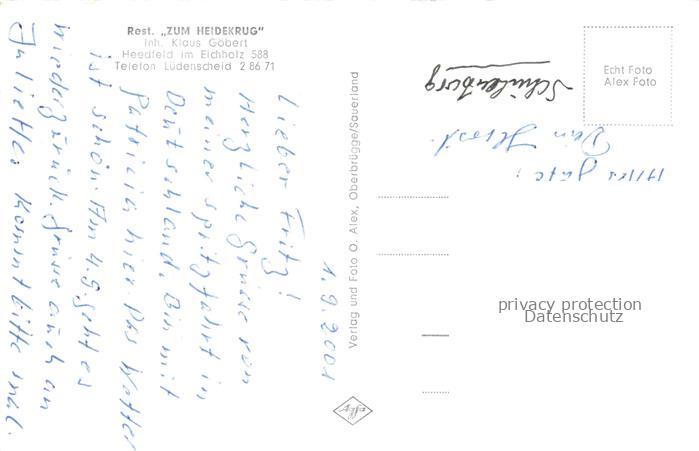 Rest. „ZUM HEIDEKRUG"
Inh. Klaus Göbert
Heedfeld im Eichholz 588
Telefon Lüdenscheid 2 86 71
1.9.2001
Lieber Fritz!
Herzliche Grüsse von
meiner Spritzfahrt in
Deutschland. Bin mit
Patricia hier. Das Wetter
ist schön. Am 4.9. geht es
wieder zurück. Grüsse auch an
Juliette. Kommt bitte mal.
Alles Gute!
Dein Horst.
Schulenburg
Verlag und Foto O. Alex, Oberbrügge/Sauerland
Echt Foto
Alex Foto
Agfa
privacy protection
Datenschutz